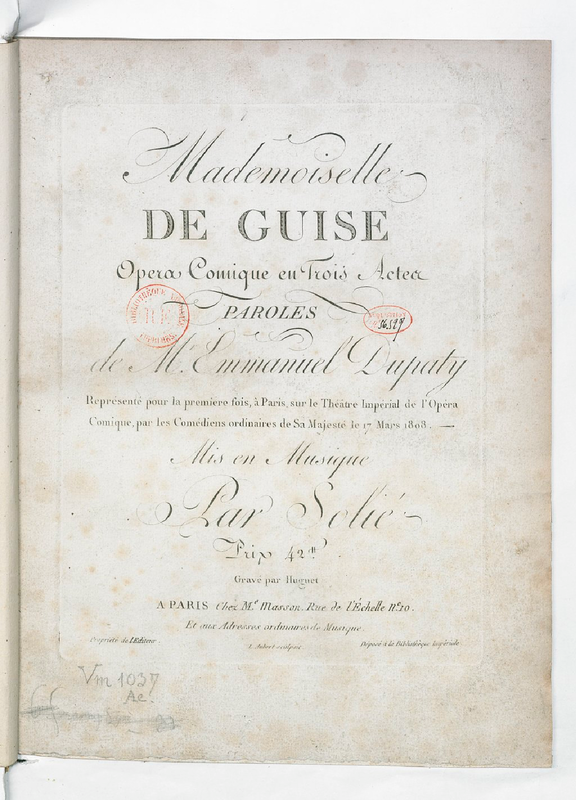 Mademoiselle
DE GUISE
Opera Comique en Trois Actes
PAROLES
de Mr. Emmanuel Dupaty
Représenté pour la premiere fois, à Paris, sur le Théâtre Impérial de l'Opéra
Comique, par les Comédiens ordinaires de Sa Majesté le 17 Mars 1808.
Mis en Musique
Par Solié
Prix 42tt
Gravé par Huguet
A PARIS Chez Me. Masson. Rue de l'Échelle No. 10.
Et aux Adresses ordinaires de Musique.
Propriété de l'Editeur.
L. Aubert sculpsit.
Déposé à la Bibliothèque Impériale
Vm 1037